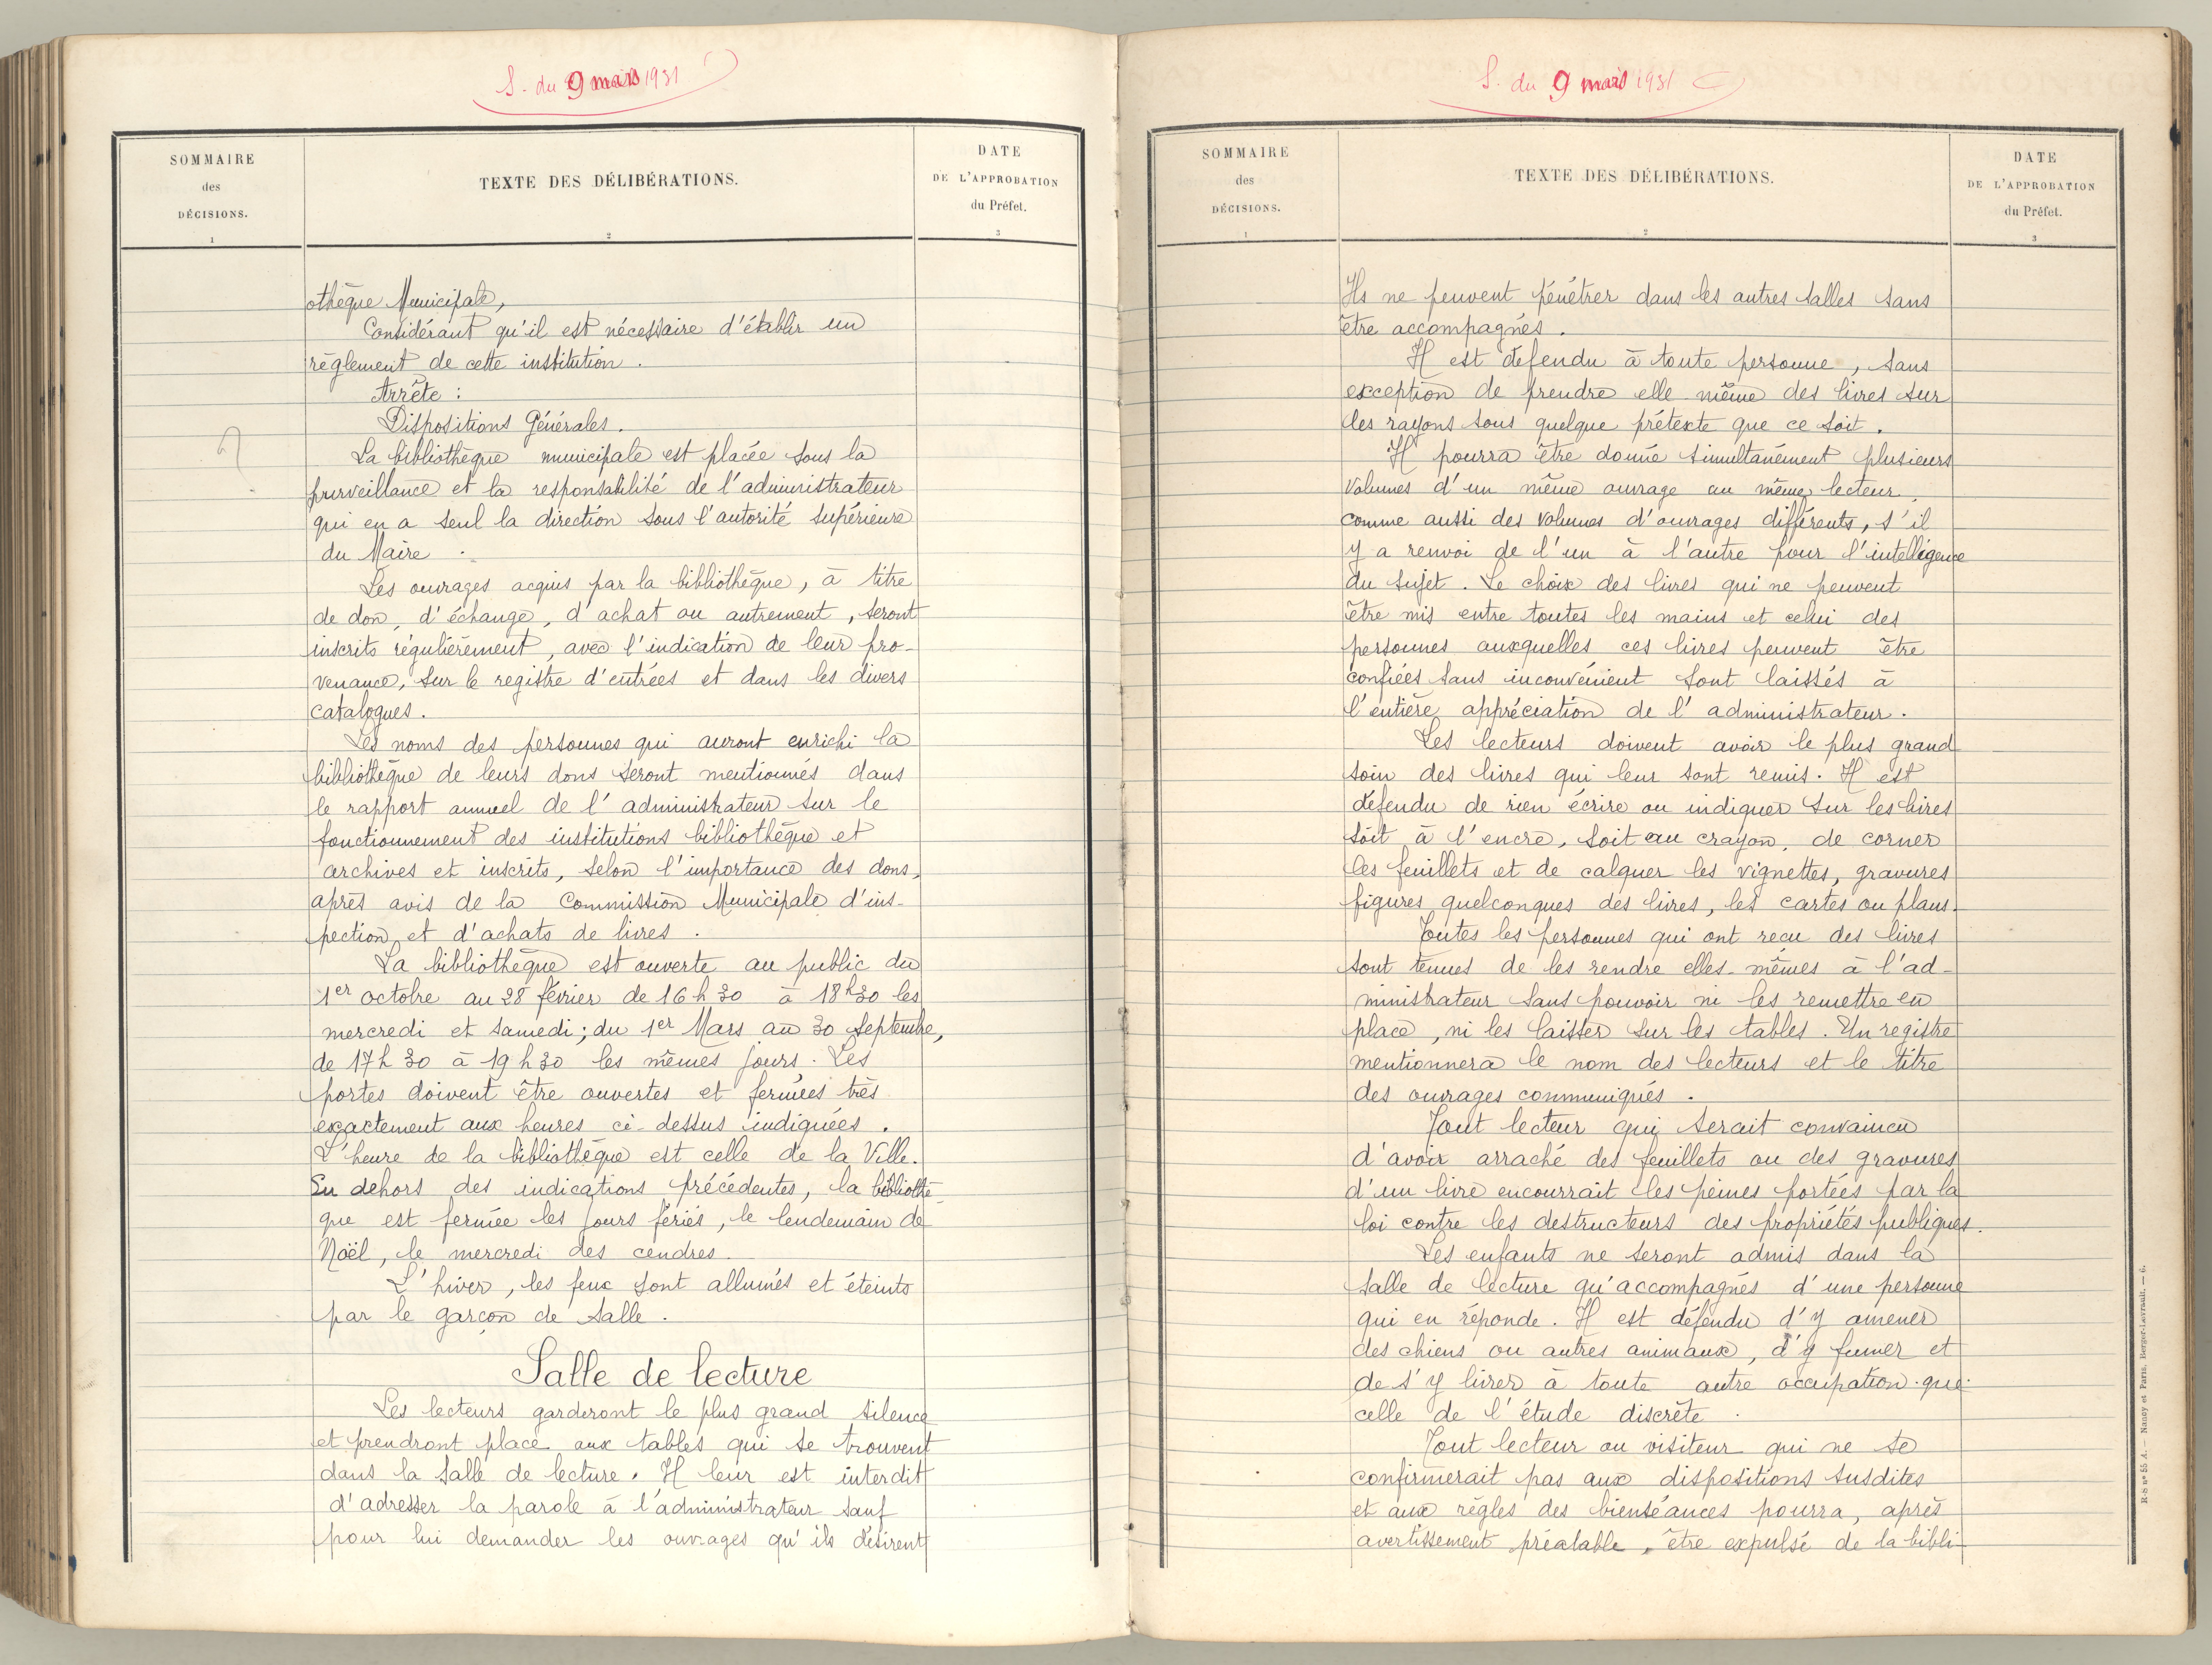 S. du 9 mars 1931
SOMMAIRE
des
DÉCISIONS.
1
TEXTE DES DÉLIBÉRATIONS.
2
DATE
DE L'APPROBATION
du Préfet.
3
othèque Municipale,
Considérant qu'il est nécessaire d'établir un
règlement de cette institution.
Arrête :
Dispositions Générales.
La bibliothèque municipale est placée sous la
surveillance et la responsabilité de l'administrateur
qui en a seul la direction sous l'autorité supérieure
du Maire.
Les ouvrages acquis par la bibliothèque, à titre
de don, d'échange, d'achat ou autrement, seront
inscrits régulièrement, avec l'indication de leur pro-
venance, sur le registre d'entrées et dans les divers
catalogues.
Les noms des personnes qui auront enrichi la
bibliothèque de leurs dons seront mentionnés dans
le rapport annuel de l'administrateur sur le
fonctionnement des institutions bibliothèque et
archives et inscrits, selon l'importance des dons,
après avis de la Commission Municipale d'ins-
pection et d'achats de livres.
La bibliothèque est ouverte au public du
1er octobre au 28 février de 16 h 30 à 18 h 30 les
mercredi et samedi ; du 1er Mars au 30 septembre,
de 17 h 30 à 19 h 30 les mêmes jours. Les
portes doivent être ouvertes et fermées très
exactement aux heures ci-dessus indiquées.
L'heure de la bibliothèque est celle de la Ville.
En dehors des indications précédentes, la bibliothè-
que est fermée les jours fériés, le lendemain de
Noël, le mercredi des cendres.
L'hiver, les feux sont allumés et éteints
par le garçon de salle.
Salle de lecture
Les lecteurs garderont le plus grand silence
et prendront place aux tables qui se trouvent
dans la salle de lecture. Il leur est interdit
d'adresser la parole à l'administrateur sauf
pour lui demander les ouvrages qu'ils désirent
S. du 9 mars 1931
SOMMAIRE
des
DÉCISIONS.
1
TEXTE DES DÉLIBÉRATIONS.
2
DATE
DE L'APPROBATION
du Préfet.
3
Ils ne peuvent pénétrer dans les autres salles sans
être accompagnés.
Il est défendu à toute personne, sans
exception de prendre elle même des livres sur
les rayons sous quelque prétexte que ce soit.
Il pourra être donné simultanément plusieurs
volumes d'un même ouvrage au même lecteur,
comme aussi des volumes d'ouvrages différents, s'il
y a renvoi de l'un à l'autre pour l'intelligence
du sujet. Le choix des livres qui ne peuvent
être mis entre toutes les mains et celui des
personnes auxquelles ces livres peuvent être
confiées sans inconvénient sont laissés à
l'entière appréciation de l'administrateur.
Les lecteurs doivent avoir le plus grand
soin des livres qui leur sont remis. Il est
défendu de rien écrire ou indiquer sur les livres
soit à l'encre, soit au crayon, de corner
les feuillets et de calquer les vignettes, gravures
figures quelconques des livres, les cartes ou plans.
Toutes les personnes qui ont reçu des livres
sont tenues de les rendre elles-mêmes à l'ad-
ministrateur sans pouvoir ni les remettre en
place, ni les laisser sur les tables. Un registre
mentionnera le nom des lecteurs et le titre
des ouvrages communiqués.
Tout lecteur qui serait convaincu
d'avoir arraché des feuillets ou des gravures
d'un livre encourrait les peines portées par la
loi contre les destructeurs des propriétés publiques.
Les enfants ne seront admis dans la
salle de lecture qu'accompagnés d'une personne
qui en réponde. Il est défendu d'y amener
des chiens ou autres animaux, d'y fumer et
de s'y livrer à toute autre occupation que
celle de l'étude discrète.
Tout lecteur ou visiteur qui ne se
confirmerait pas aux dispositions susdites
et aux règles des bienséances pourra, après
avertissement préalable, être expulsé de la bibli-
R-S nº 55 A. — Nancy et Paris, Berger-Levrault. — 6.